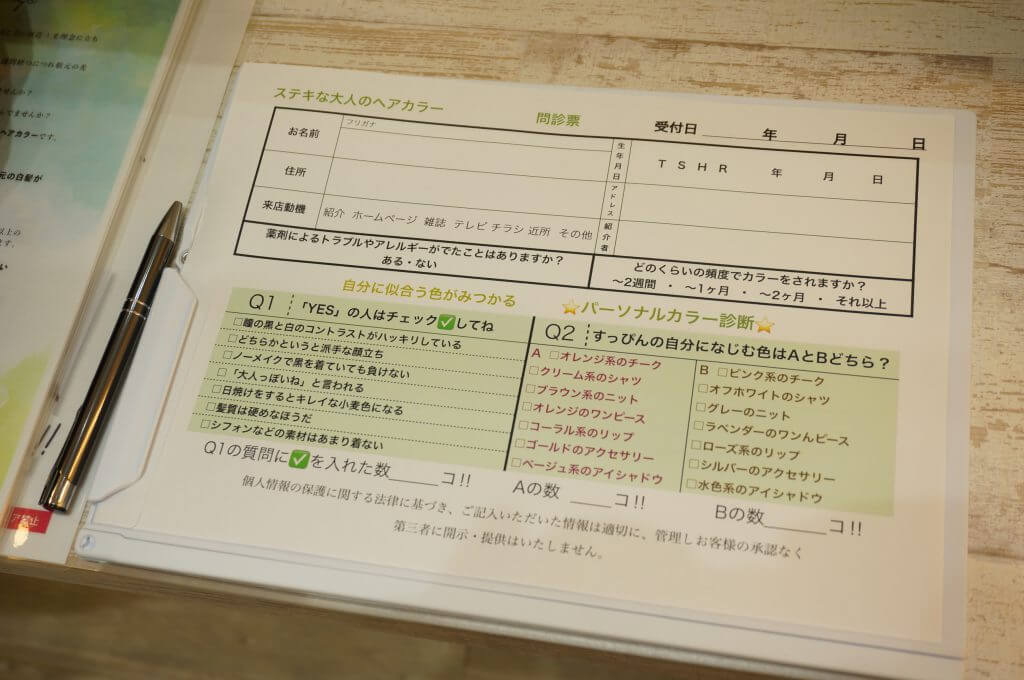 ステキな大人のヘアカラー 問診票 受付日 年 月 日
お名前 フリガナ 生年月日 T S H R 年 月 日
住所 アドレス
来店動機 紹介 ホームページ 雑誌 テレビ チラシ 近所 その他 紹介者
薬剤によるトラブルやアレルギーがでたことはありますか?
ある・ない
どのくらいの頻度でカラーをされますか?
〜2週間 ・ 〜1ヶ月 ・ 〜2ヶ月 ・ それ以上
自分に似合う色がみつかる ⭐パーソナルカラー診断⭐
Q1 「YES」の人はチェック✅してね
□瞳の黒と白のコントラストがハッキリしている
□どちらかというと派手な顔立ち
□ノーメイクで黒を着ていても負けない
□「大人っぽいね」と言われる
□日焼けをするとキレイな小麦色になる
□髪質は硬めなほうだ
□シフォンなどの素材はあまり着ない
Q1の質問に✅を入れた数 コ!!
Q2 すっぴんの自分になじむ色はAとBどちら?
A □オレンジ系のチーク
□クリーム系のシャツ
□ブラウン系のニット
□オレンジのワンピース
□コーラル系のリップ
□ゴールドのアクセサリー
□ベージュ系のアイシャドウ
Aの数 コ!!
B □ピンク系のチーク
□オフホワイトのシャツ
□グレーのニット
□ラベンダーのワんピース
□ローズ系のリップ
□シルバーのアクセサリー
□水色系のアイシャドウ
Bの数 コ!!
個人情報の保護に関する法律に基づき、ご記入いただいた情報は適切に、管理しお客様の承認なく
第三者に開示・提供はいたしません。
ヘアカラーです。
元の白髪が